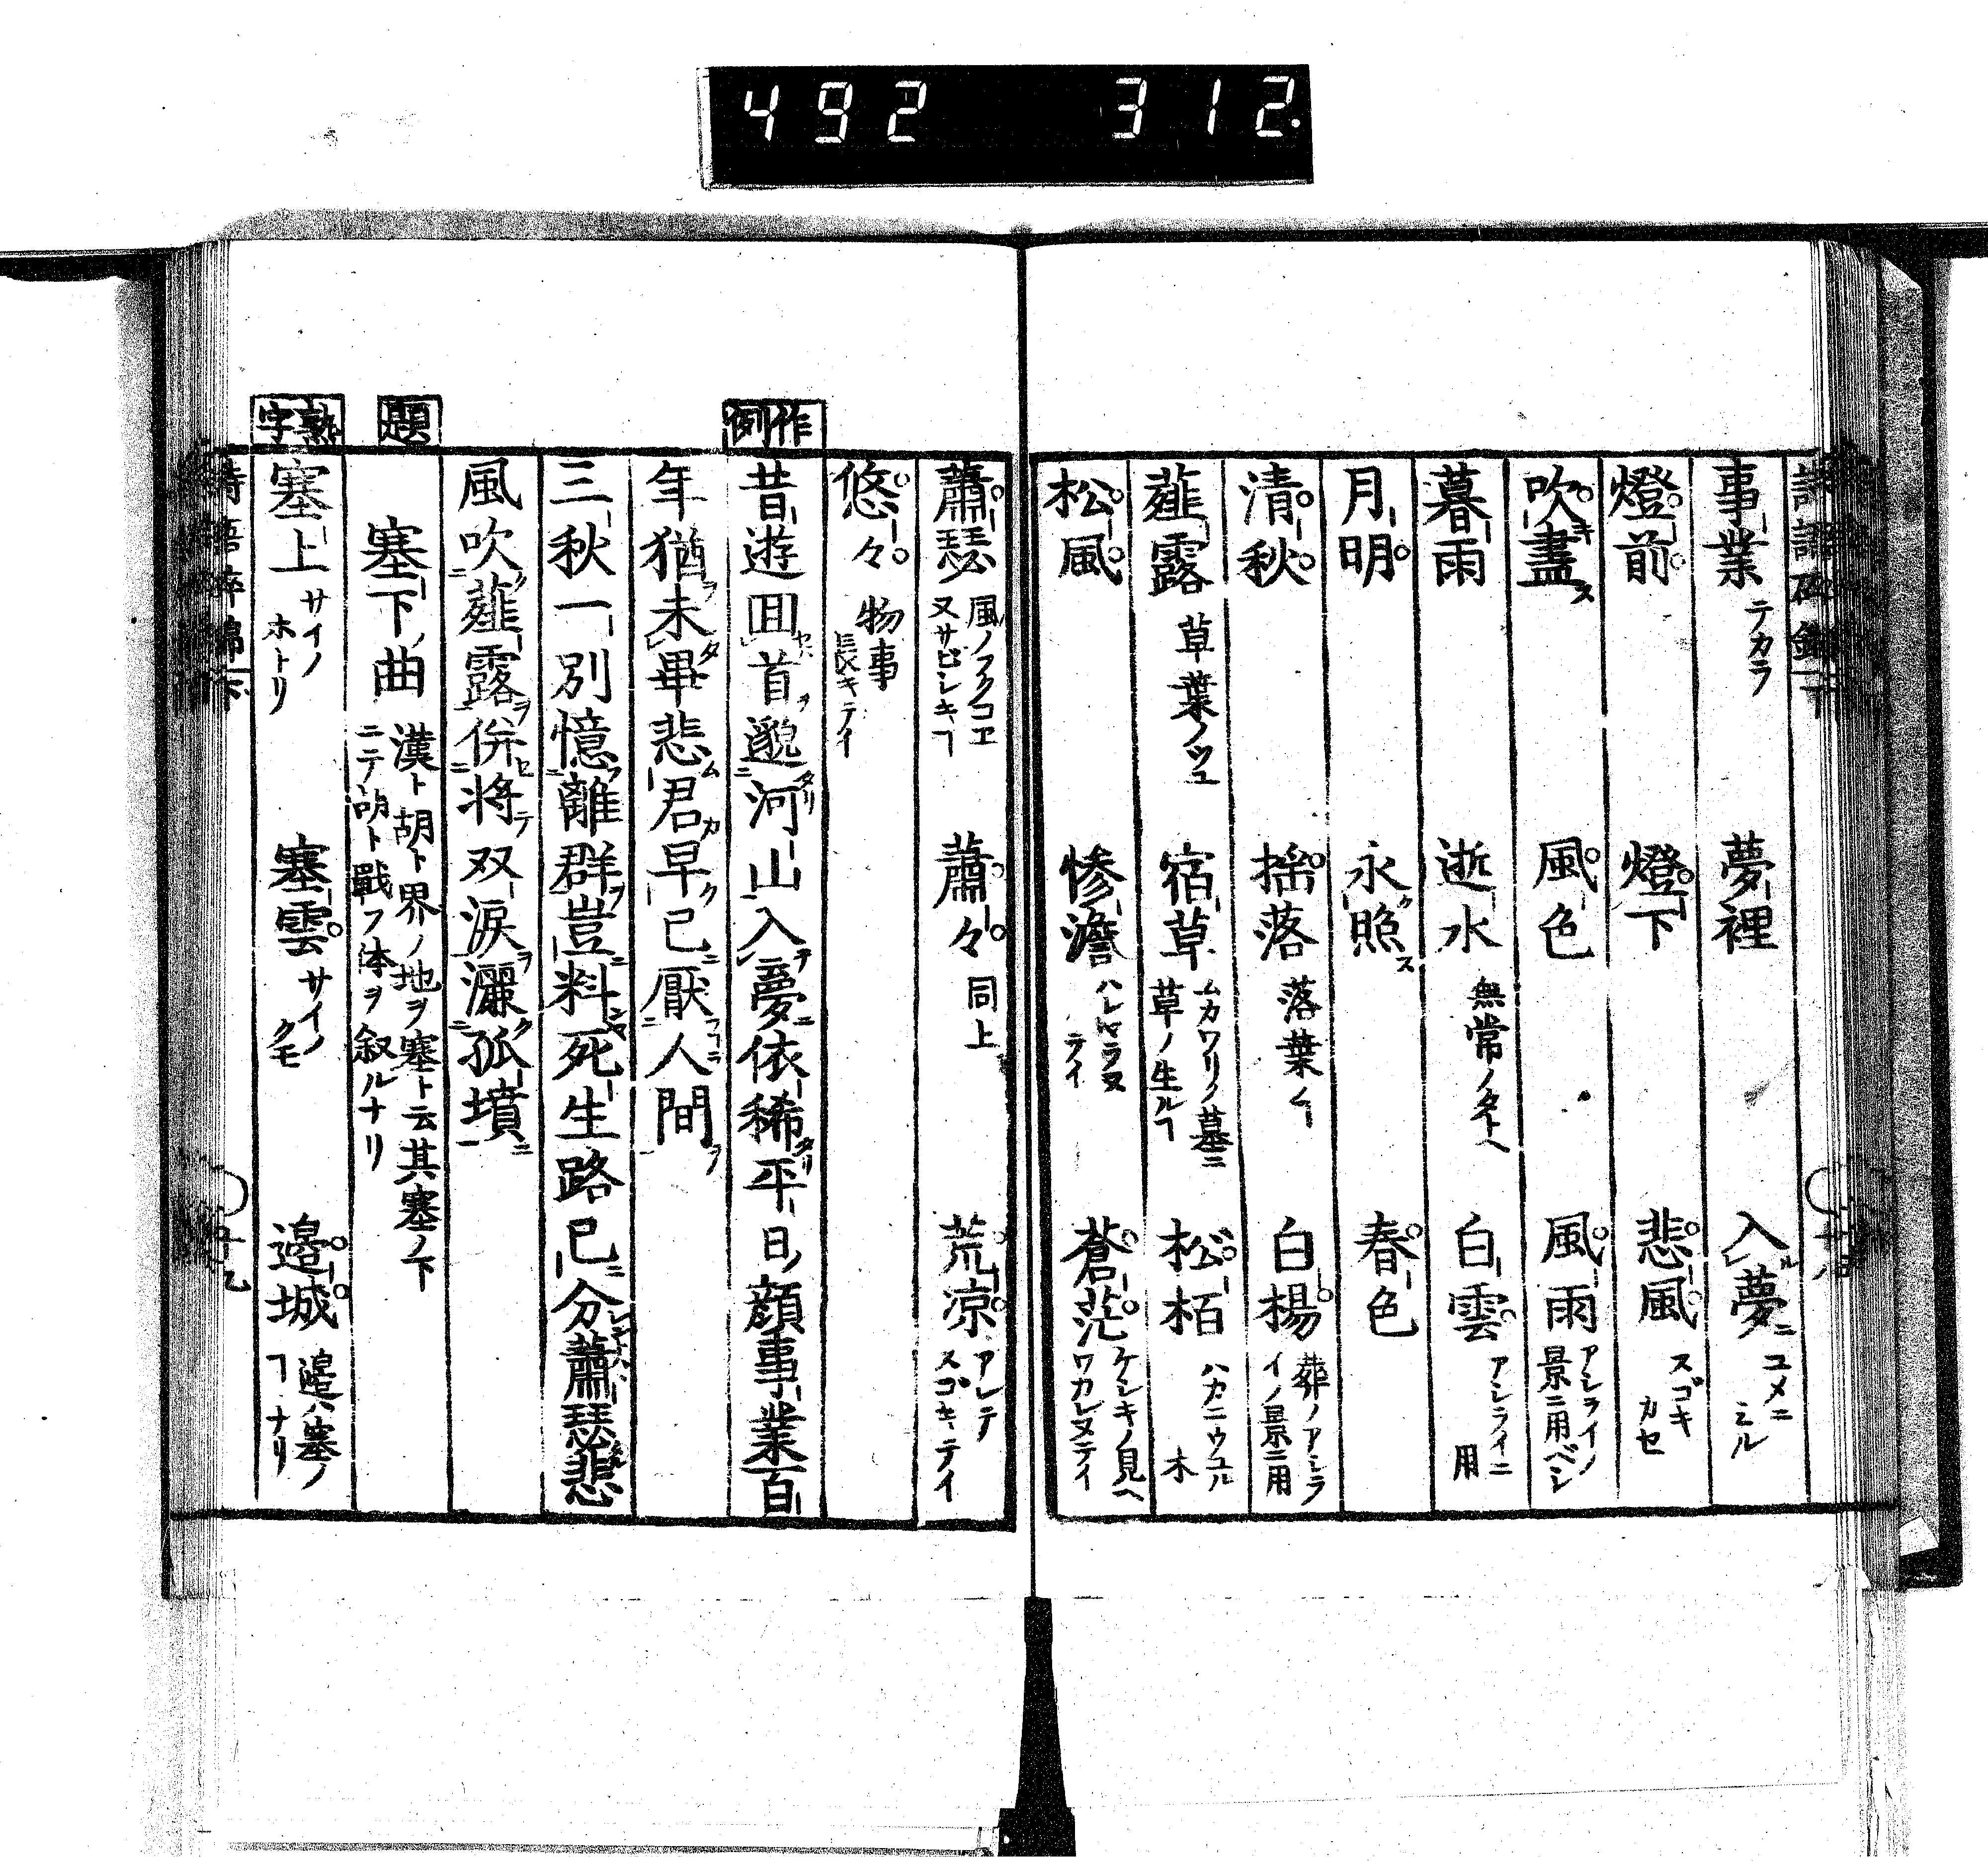 492 312.
事業 テカラ 夢裡 入ル夢ニ ユメニミル
燈前 燈下 悲風 スゴキカセ
吹キ盡ス 風色 風雨 アシライノ景ニ用ベシ
暮雨 逝水 無常ノタトヘ 白雲 アシライニ用
月明 永ク照ス 春色
清秋 揺落 落葉ノ 白楊 葬ノアシライノ景ニ用
薤露 草葉ノツユ 宿草 ムカワリノ墓ニ草ノ生ルヿ 松栢 ハカニウユル木
松風 惨澹 ハレヤラヌテイ 蒼茫 ケシキノ見ヘワカレヌテイ
蕭瑟 風ノフクコエ又サビシキヿ 蕭々 同上 荒凉 アレテスゴキテイ
悠々 物事長キテイ
作例
昔遊回首邈河山入夢依稀平日顔事業百
年猶未畢悲君早已厭人間
三秋一別憶離群豈料死生路已分蕭瑟悲
風吹薤露併將双淚灑孤墳
題
塞下曲 漢ト胡ト界ノ地ヲ塞ト云其塞ノ下ニテ胡ト戰フ体ヲ叙ルナリ
熟字
塞上 サイノホトリ 塞雲 サイノクモ 邉城 邉ハ塞ノヿナリ